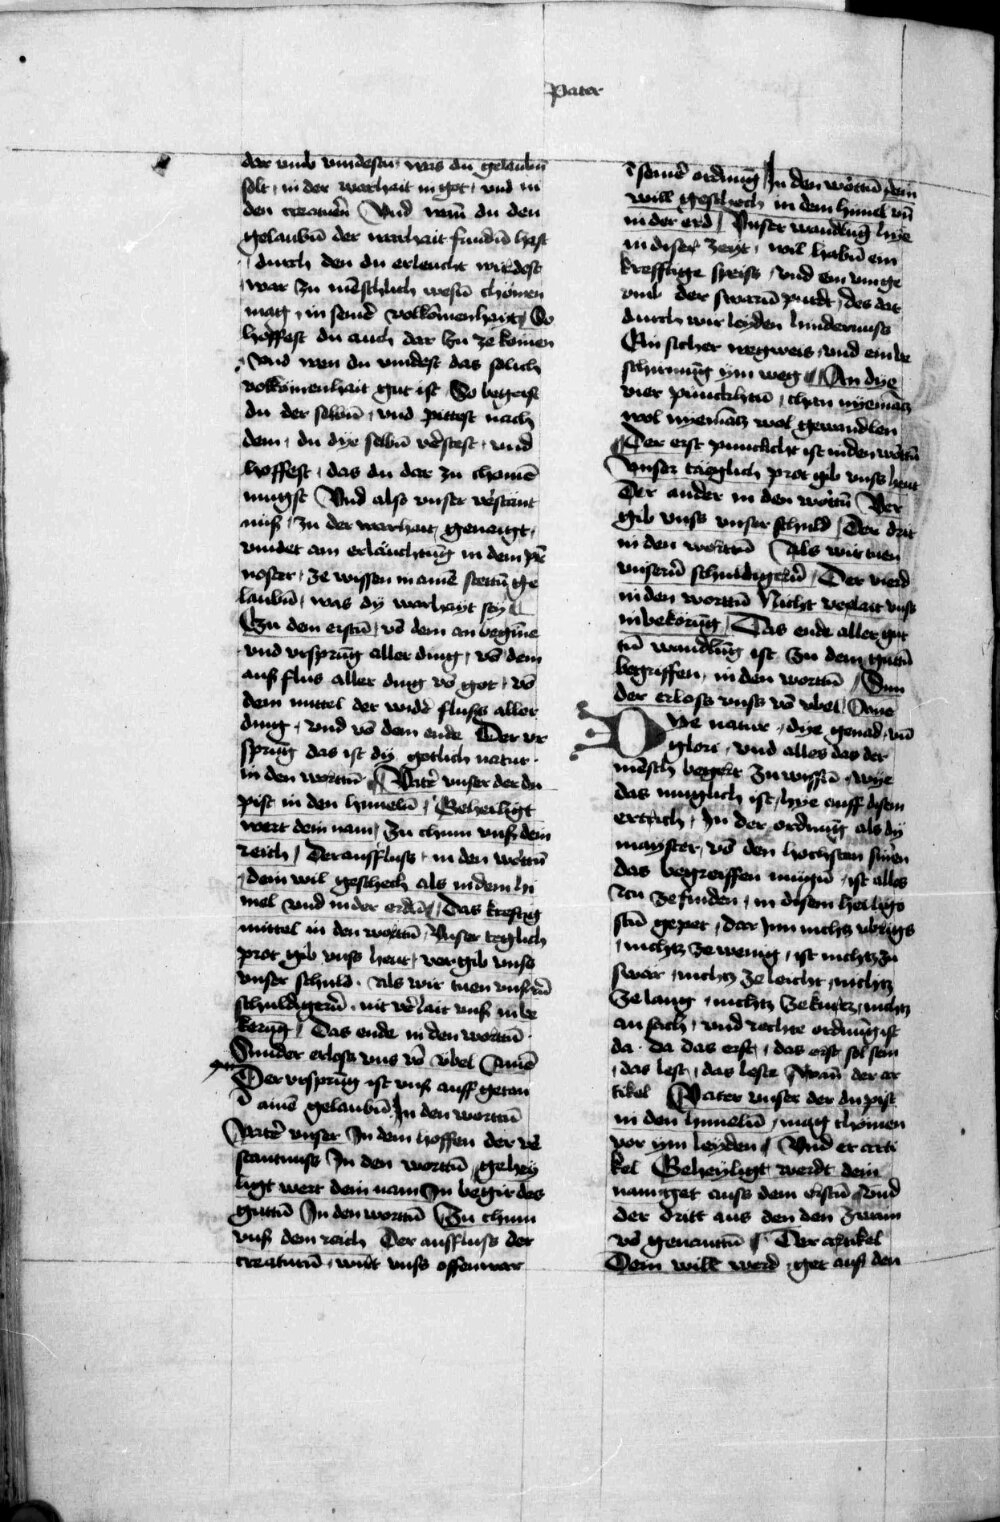 Pater
dar vmb vindestu was du gelaubñ
solt in der warhait in got vnd in
den creaturñ Vnd wañ du den
gelaubñ der warhait fundñ hast
durch den du erleucht wirdest
war zu mēschlich wesñ chomen
mag in seinē volkomenhait So
hoffest du auch dar zu ze komen
Vnd wen du vindest das solich
volkomenhait gut ist So begerst
du der selbñ vnd pittest nach
dem du dye selbñ vēstest vnd
hoffest das du dar zu chomē
mugst Vnd also vnser vēstant
nuß zu der warhait genaigt
vindet ain erläuchtūg in dem pr̄
noster ze wissen in ainē stettñ ge
laubñ was dy warhayt sey
Zu dem erstñ vō dem an begīne
vnd vrsprūg aller ding vō dem
auß flus aller ding vō got vō
dem mittel der widē fluß aller
ding vnd vō dem ende Der vr
sprūg das ist dy gotlich natur
in den worttñ Patē vnser der du
pist in den himelñ Geheiligt
wert dein nam Zu chum vnß dein
reich Der außfluß in den wortñ
dein wil geschech als in dem hi
mel vnd in der erdñ Das kreftig
mittel in den worttñ Vnser teglich
prot gib vnß heut vergib vnß
vnser schuld Als wir tuen vnsrñ
schuldigerñ nit vēlait vnß in be
kerūg Das ende in den worttñ
Sunder erloß vns vō vbel Amē
Der vrsprūg ist vnß auff getan
ī ainē gelaubñ In den worttñ
Patē vnser In dem hoffen der vē
stantnuß In den worttñ gehey
ligt wert dein nam In begir des
guttñ In den worttñ Zu chum
vnß dein reich Der außfluß der
creaturñ wirt vnß offenwar
ī seinē ordnūg In den wortñ dein
will geschech in dem himel vñ
in der erd Vnser wandlūg hye
in diser zeyt wil habñ ein
krefftige speiß vnd ein ringe
vmb der swarñ purdt des dar
durch wir leyden hindernuß
Ein sicher wegweis vnd ein be
schirmūg ym weg An dye
vier punckhtñ chan nyemātz
wol nyemātz wol gewandlen
Der erst punckcht ist in den wortñ
Vnser täglich prot gib vnß heut
Der ander in den wortñ Ver
gib vnß vnser schuld Der drit
in den worttñ Als wir tuen
vnserñ schuldigerñ Der vierd
in den worttñ Nicht verlait vnß
in bekorūg Das ende aller gut
tñ wandlūg ist zu dem guttñ
begriffen in den worttñ Sun
der erloß vnß vō vbel Ame
Dye natur dye genad vñ
glori vnd alles das der
mensch begert zu wissñ wye
das muglich ist hye auff disem
ertrich In der ordnūg als dy
mayster vō den hochsten sinēn
das begreiffen mugñ ist alles
zu ze finden in disem heiligi
stñ gepet dar Inn nichtz vbrigs
nichtz ze wenig ist nichtz zu
swar nichtz ze leicht nichtz
ze lang nichtz ze kurtz nichtz
an sach vnd rechte ordnūg ist
da Da das erst das erst sol sein
das lest das leste Wañ der ar
tikel Pater vnser der du pist
in den himelñ mag chomen
vor ym leyden Vnd er arti
kel Geheyligt werdt dein
nam get auß dem erstñ vnd
der dritt aus den den zwain
vō genanttñ Der artikel
Dein will werd get auß den